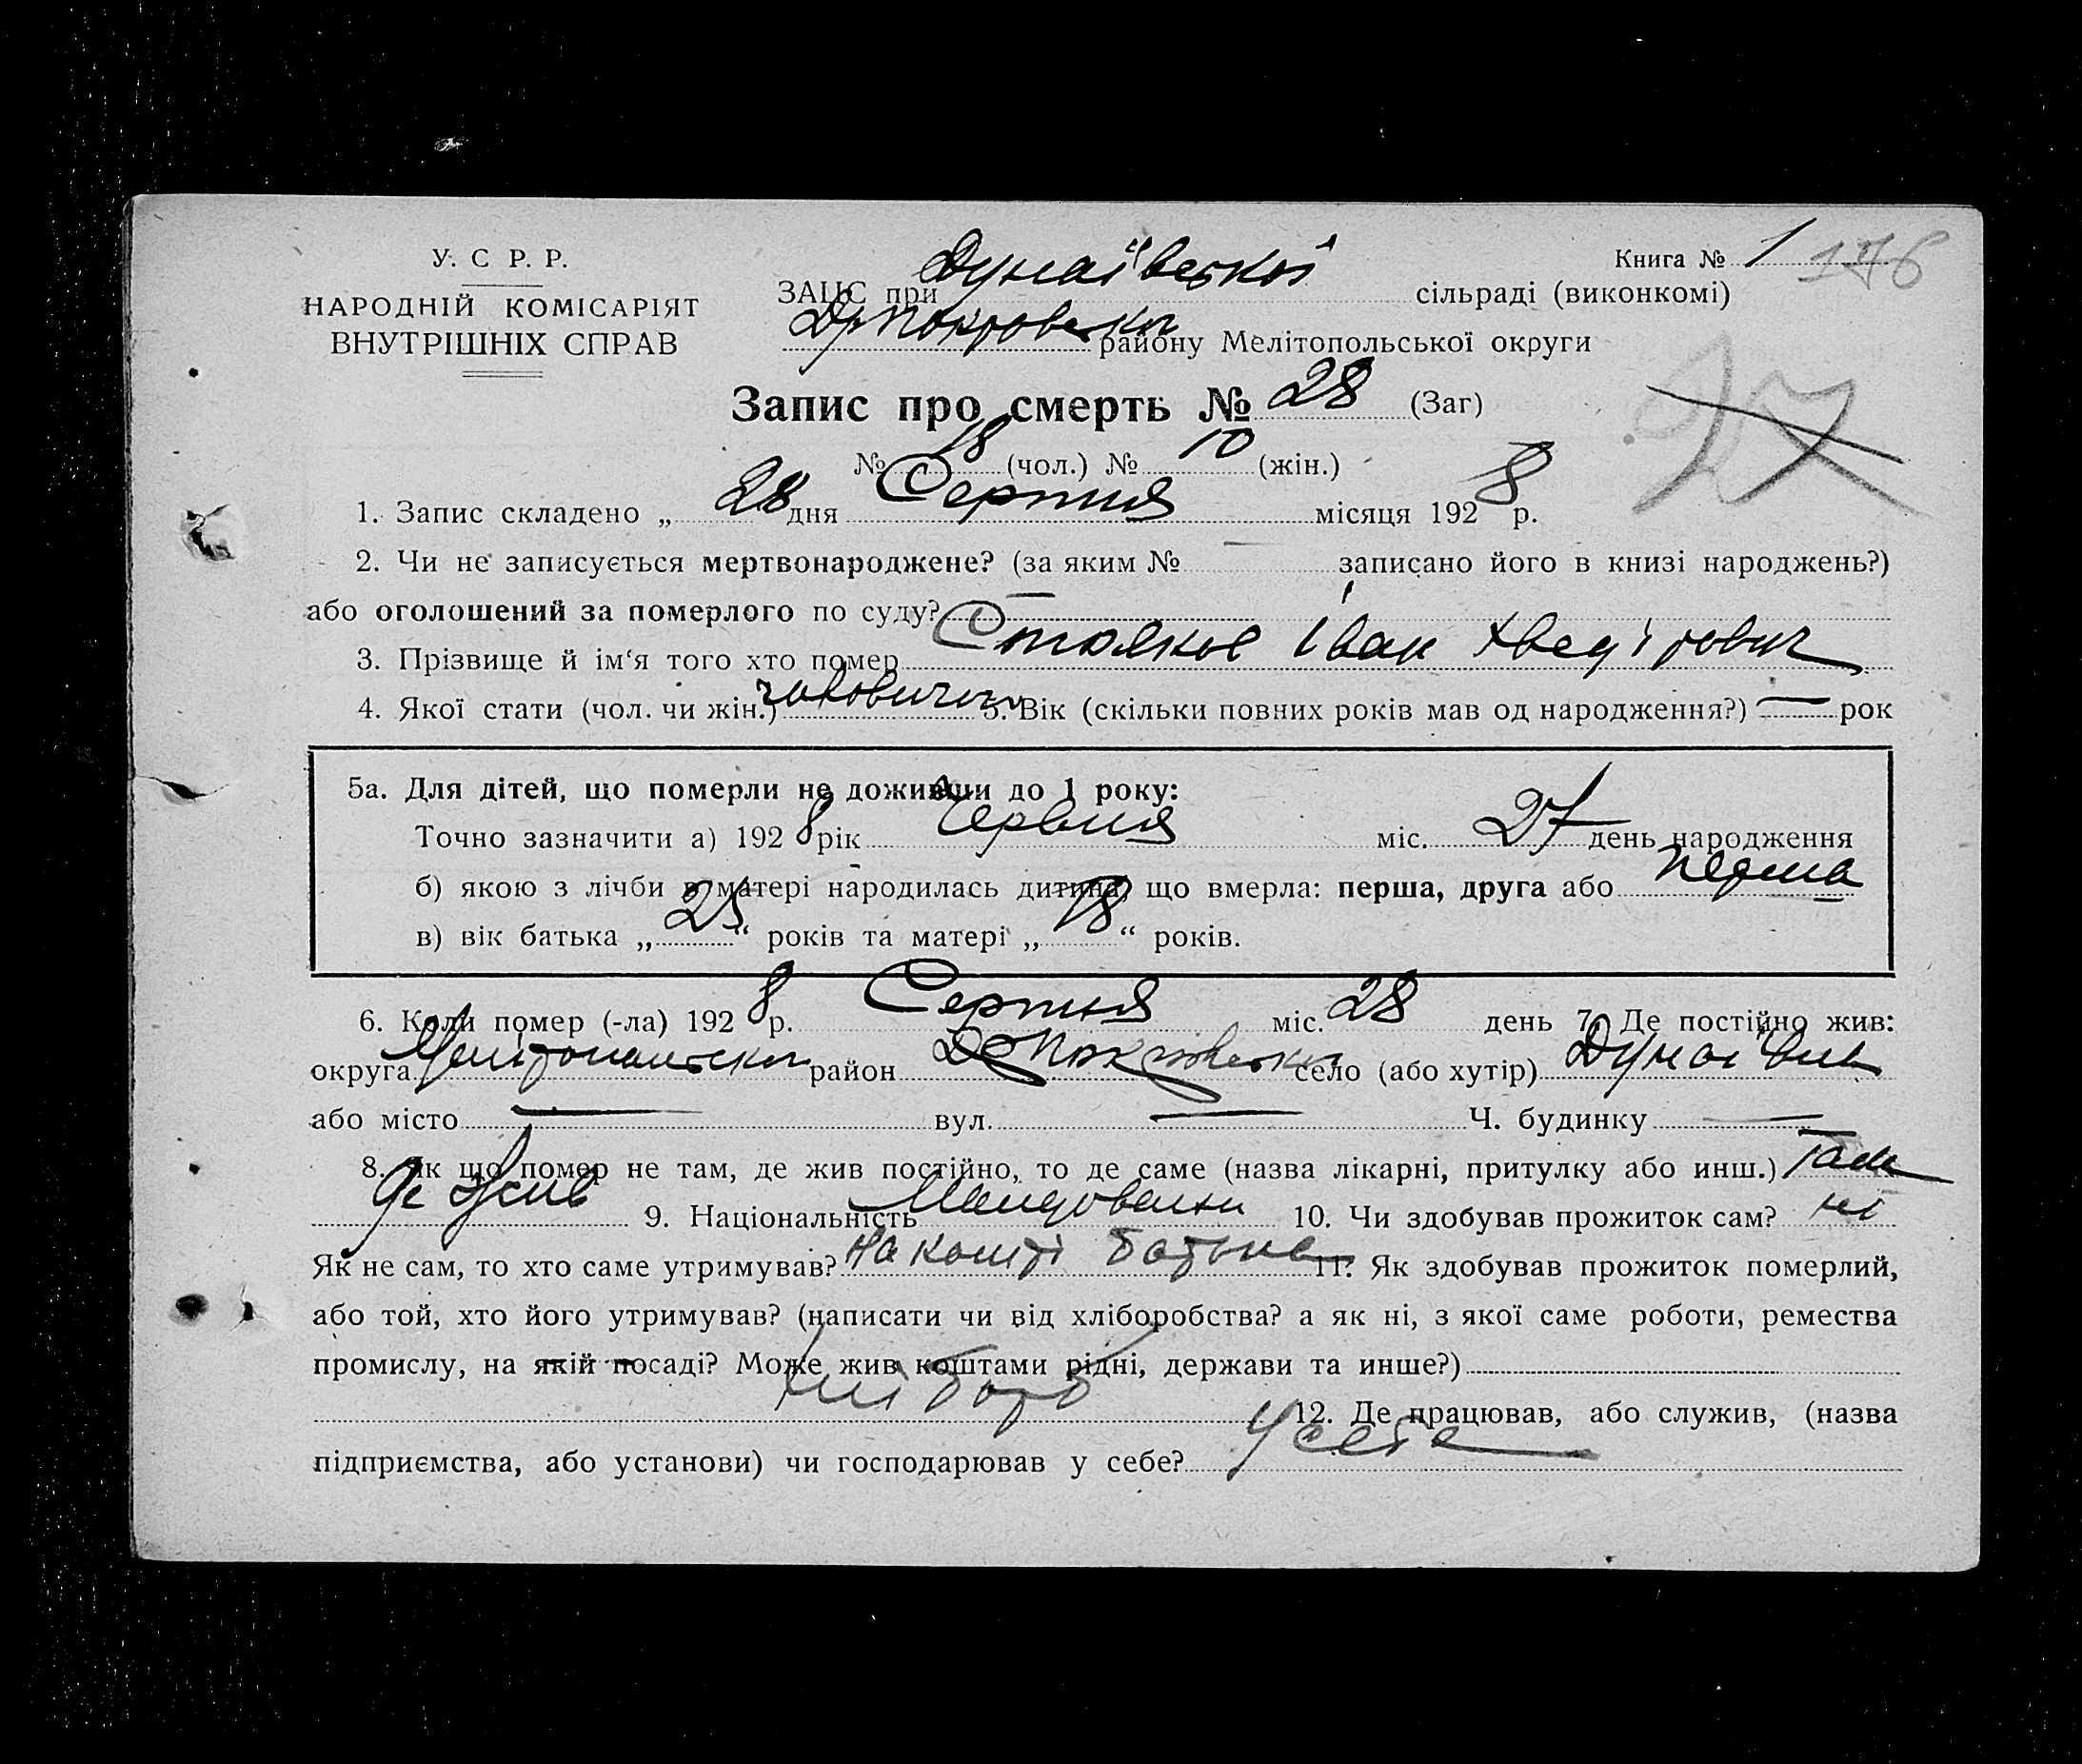 У. С Р. Р.
НАРОДНІЙ КОМІСАРІЯТ
ВНУТРІШНІХ СПРАВ
Книга № 1 176
ЗАЦС при Дунаївської сільраді (виконкомі)
району Мелітопольської округи
27
Запис про смерть № 28 (Заг)
№ 18 (чол.) № 10 (жін.)
1. Запис складено „ 28 дня Серпня місяця 1928 р.
2. Чи не записується мертвонароджене? (за яким № — записано його в книзі народжень?)
або оголошений за померлого по суду? —
3. Прізвище й ім‘я того хто помер Стоянов Іван Хведірович
4. Якої стати (чол. чи жін.) чоловичи 5. Вік (скільки повних років мав од народження?) — рок
5а. Для дітей, що померли не доживши до 1 року:
Точно зазначити а) 1928 рік Червня міс. 27 день народження
б) якою з лічби в матері народилась дитина, що вмерла: перша, друга або перша
в) вік батька „ 25 “ років та матері „ 18 “ років.
6. Коли помер (-ла) 1928 р. Серпня міс. 28 день 7. Де постійно жив:
округа Мелітопольська район село (або хутір) Дунаївка
або місто — вул. — Ч. будинку —
8. Як що помер не там, де жив постійно, то де саме (назва лікарні, притулку або инш.) там
де жив 9. Національність 10. Чи здобував прожиток сам? ні
Як не сам, то хто саме утримував? На кошті батька 11. Як здобував прожиток померлий,
або той, хто його утримував? (написати чи від хліборобства? а як ні, з якої саме роботи, ремества
промислу, на якій посаді? Може жив коштами рідні, держави та инше?)
хлібороб 12. Де працював, або служив, (назва
підприємства, або установи) чи господарював у себе? У себе